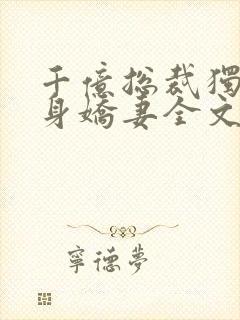 千億總裁獨
身嬌妻全文
寧德夢